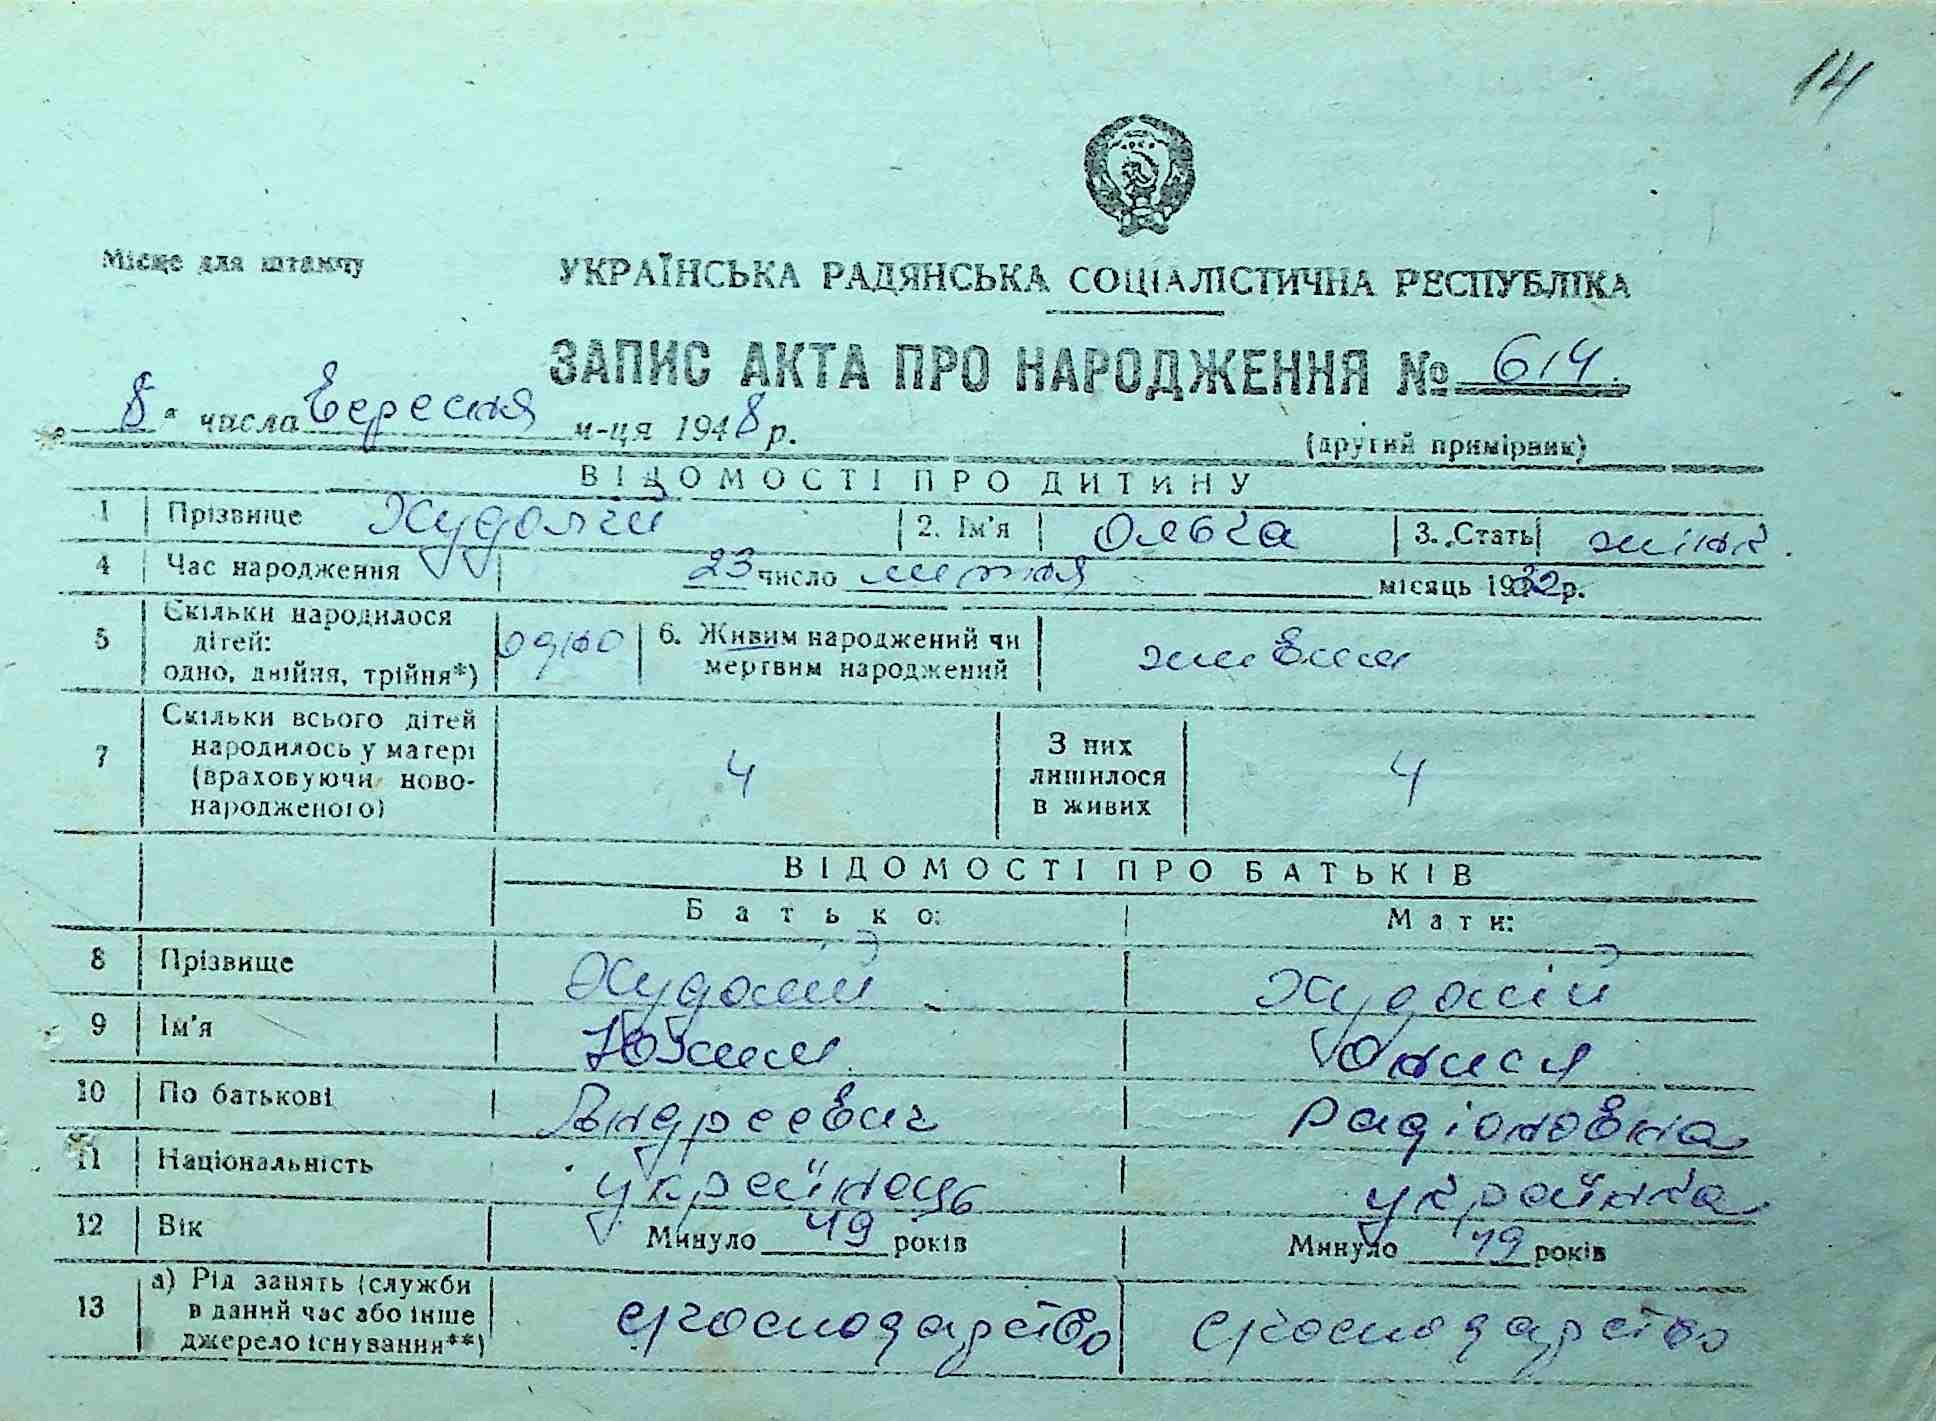 14
Місце для штампу
УКРАЇНСЬКА РАДЯНСЬКА СОЦІАЛІСТИЧНА РЕСПУБЛІКА
ЗАПИС АКТА ПРО НАРОДЖЕННЯ № 614.
„ 8 “ числа Вересня м-ця 1948 р.
(другий примірник)
ВІДОМОСТІ ПРО ДИТИНУ
1 Прізвище 2. Ім'я Ольга 3. Стать жінк.
4 Час народження 23 число липня місяць 1932 р.
5 Скільки народилося дітей: одно, двійня, трійня*) одно 6. Живим народжений чи мертвим народжений живим
7 Скільки всього дітей народилось у матері (враховуючи ново-народженого) 4 З них лишилося в живих 4
ВІДОМОСТІ ПРО БАТЬКІВ
Батько: Мати:
8 Прізвище Худолій Худолій
9 Ім'я Юхим Онися
10 По батькові Андреевич Радіоновна
11 Національність українець українка
12 Вік Минуло 49 років Минуло 49 років
13 а) Рід занять (служби в даний час або інше джерело існування**) с/господарство с/господарство